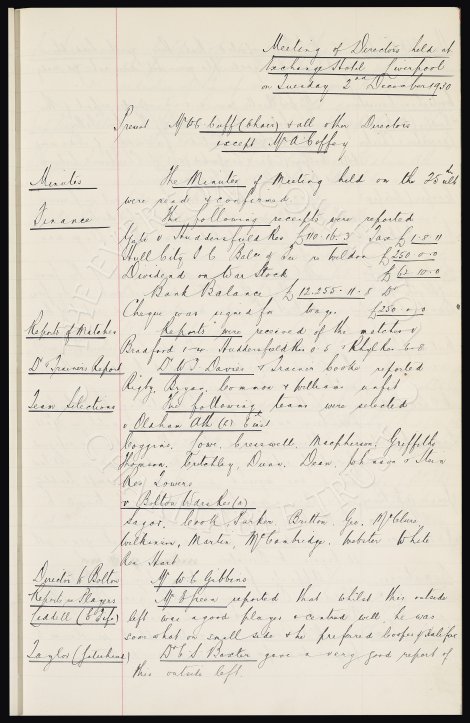 Meeting of Directors held at
Exchange Hotel Liverpool
on Tuesday 2nd December 1930
Present Mr W C Cuff (Chair) & all other Directors
except Mr A Coffey
Minutes The Minutes of Meeting held on the 25th ult
were read & confirmed.
Finance The following receipts were reported
Gate v Huddersfield Res £110.16.3 Tax £1.8.11
Hull City F C Balce of fee re Weldon £250.0.0
Dividend on War Stock £62.10.0
Bank Balance £12.255.11.8 Dr
Cheque was signed for wages £250.0.0
Reports of Matches Reports were received of the matches v
Bradford Huddersfield Res Rhyl Res
Dr & Trainers Report Dr W J Davies & Trainer Cooke reported
Rigby, Bryan, Common & Williams unfit
Team Selections The following teams were selected
v Oldham Ath (h) East
Coggins. Lowe. Cresswell. Macpherson. Griffiths
Thomson. Critchley. Dunn. Dean. Johnson & Stein
Res Lowers
v Bolton Wdrs Res (a)
Sagar. Cook. Parker. Britton. Gee. McClure.
Wilkinson, Martin, McCambridge, Webster White
Res Hart
Director to Bolton Mr W C Gibbins
Report re Players Mr Green reported that whilst this outside
Liddell left was a good player & centred well he was
somewhat on small side & he preferred Cooper of Halifax
Taylor (Gateshead) Dr C S Baxter gave a very good report of
this outside left.